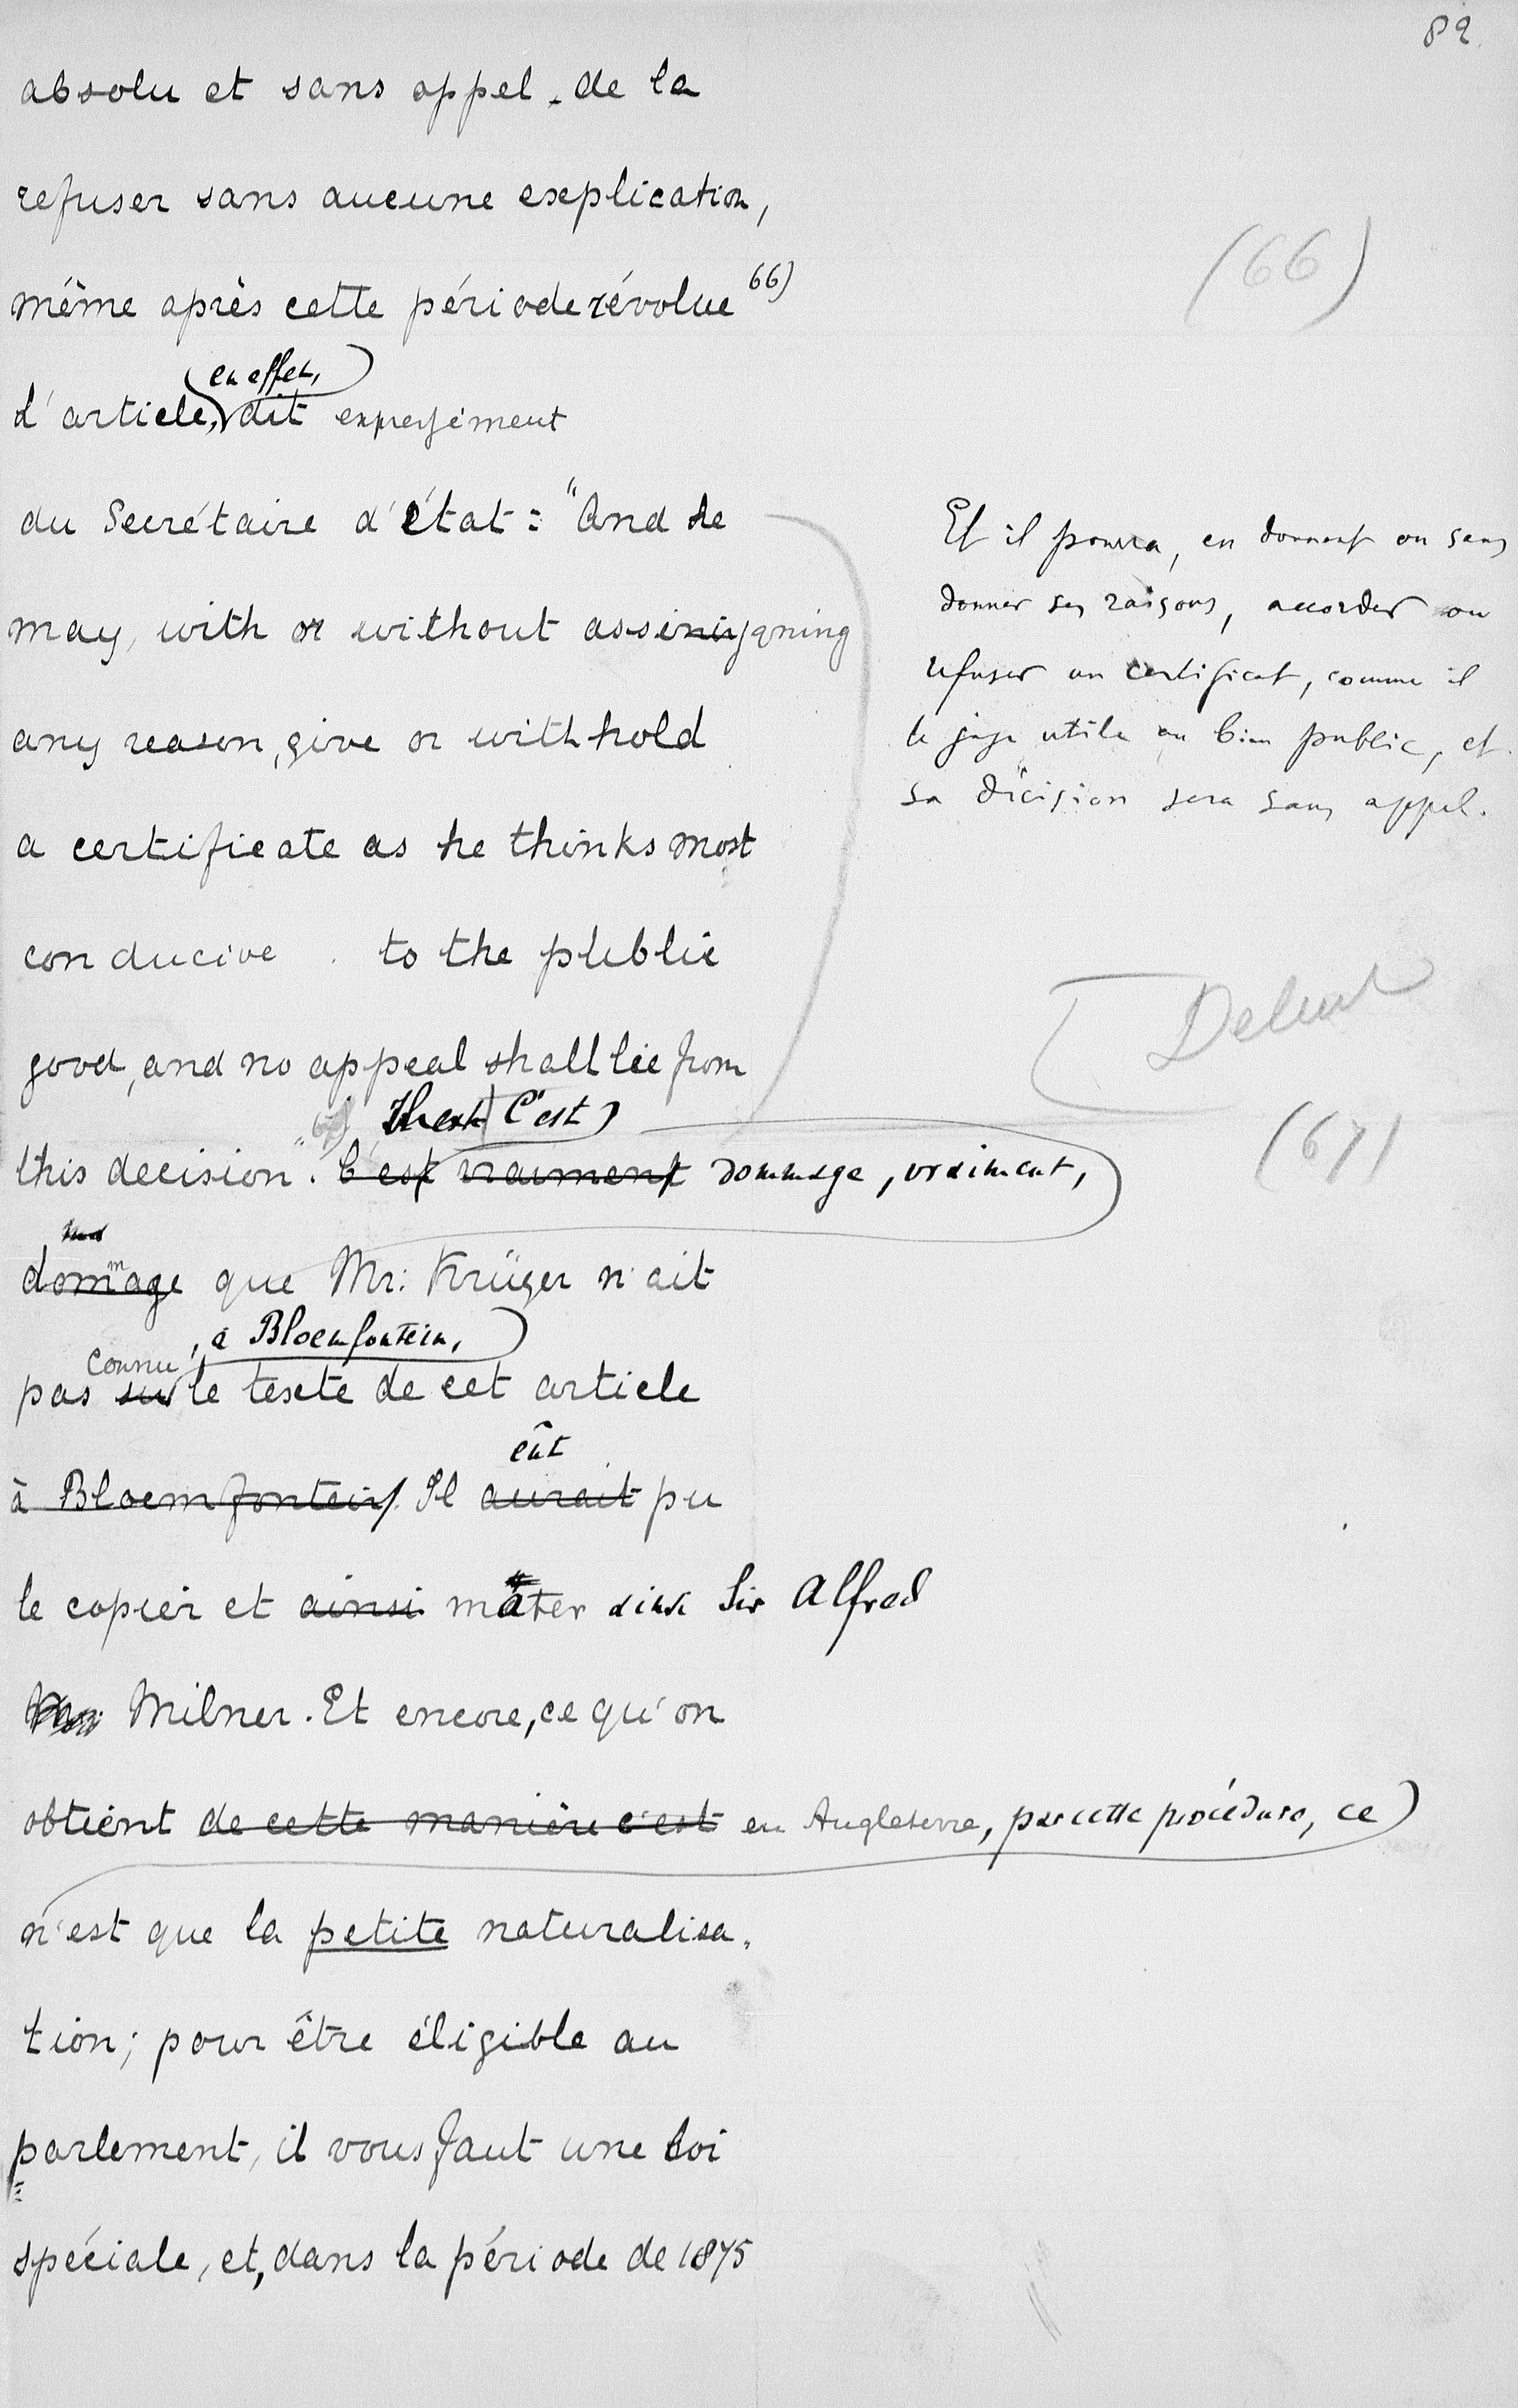 82
absolu et sans appel - de la
refuser sans aucune explication,
(66)
même après cette période révolue 66)
en effet,
L'article, dit expressément
du Secrétaire d'état: "And he
may, with or without assigning
any reason, give or withhold
a certificate as he thinks most
conducive to the public
good, and no appeal shall lie from
Et il pourra, en donnant ou sans
donner ses raisons, accorder ou
refuser un certificat, comme il
le juge utile au bien public, et
sa décision sera sans appel.
(67)
C'est
this decision". C'est vraiment dommage, vraiment,
dommage que Mr. Krüger n'ait
connu , à Bloemfontein,
pas su le texte de cet article
eût
à Bloemfontein. Il aurait pu
le copier et ainsi mater ainsi Sir Alfred
Milner. Et encore, ce qu'on
obtient de cette manière c'est en Angleterre, par cette procédure, ce
n'est que la petite naturalisa-
tion; pour être éligible au
parlement, il vous faut une loi
spéciale, et, dans la période de 1875